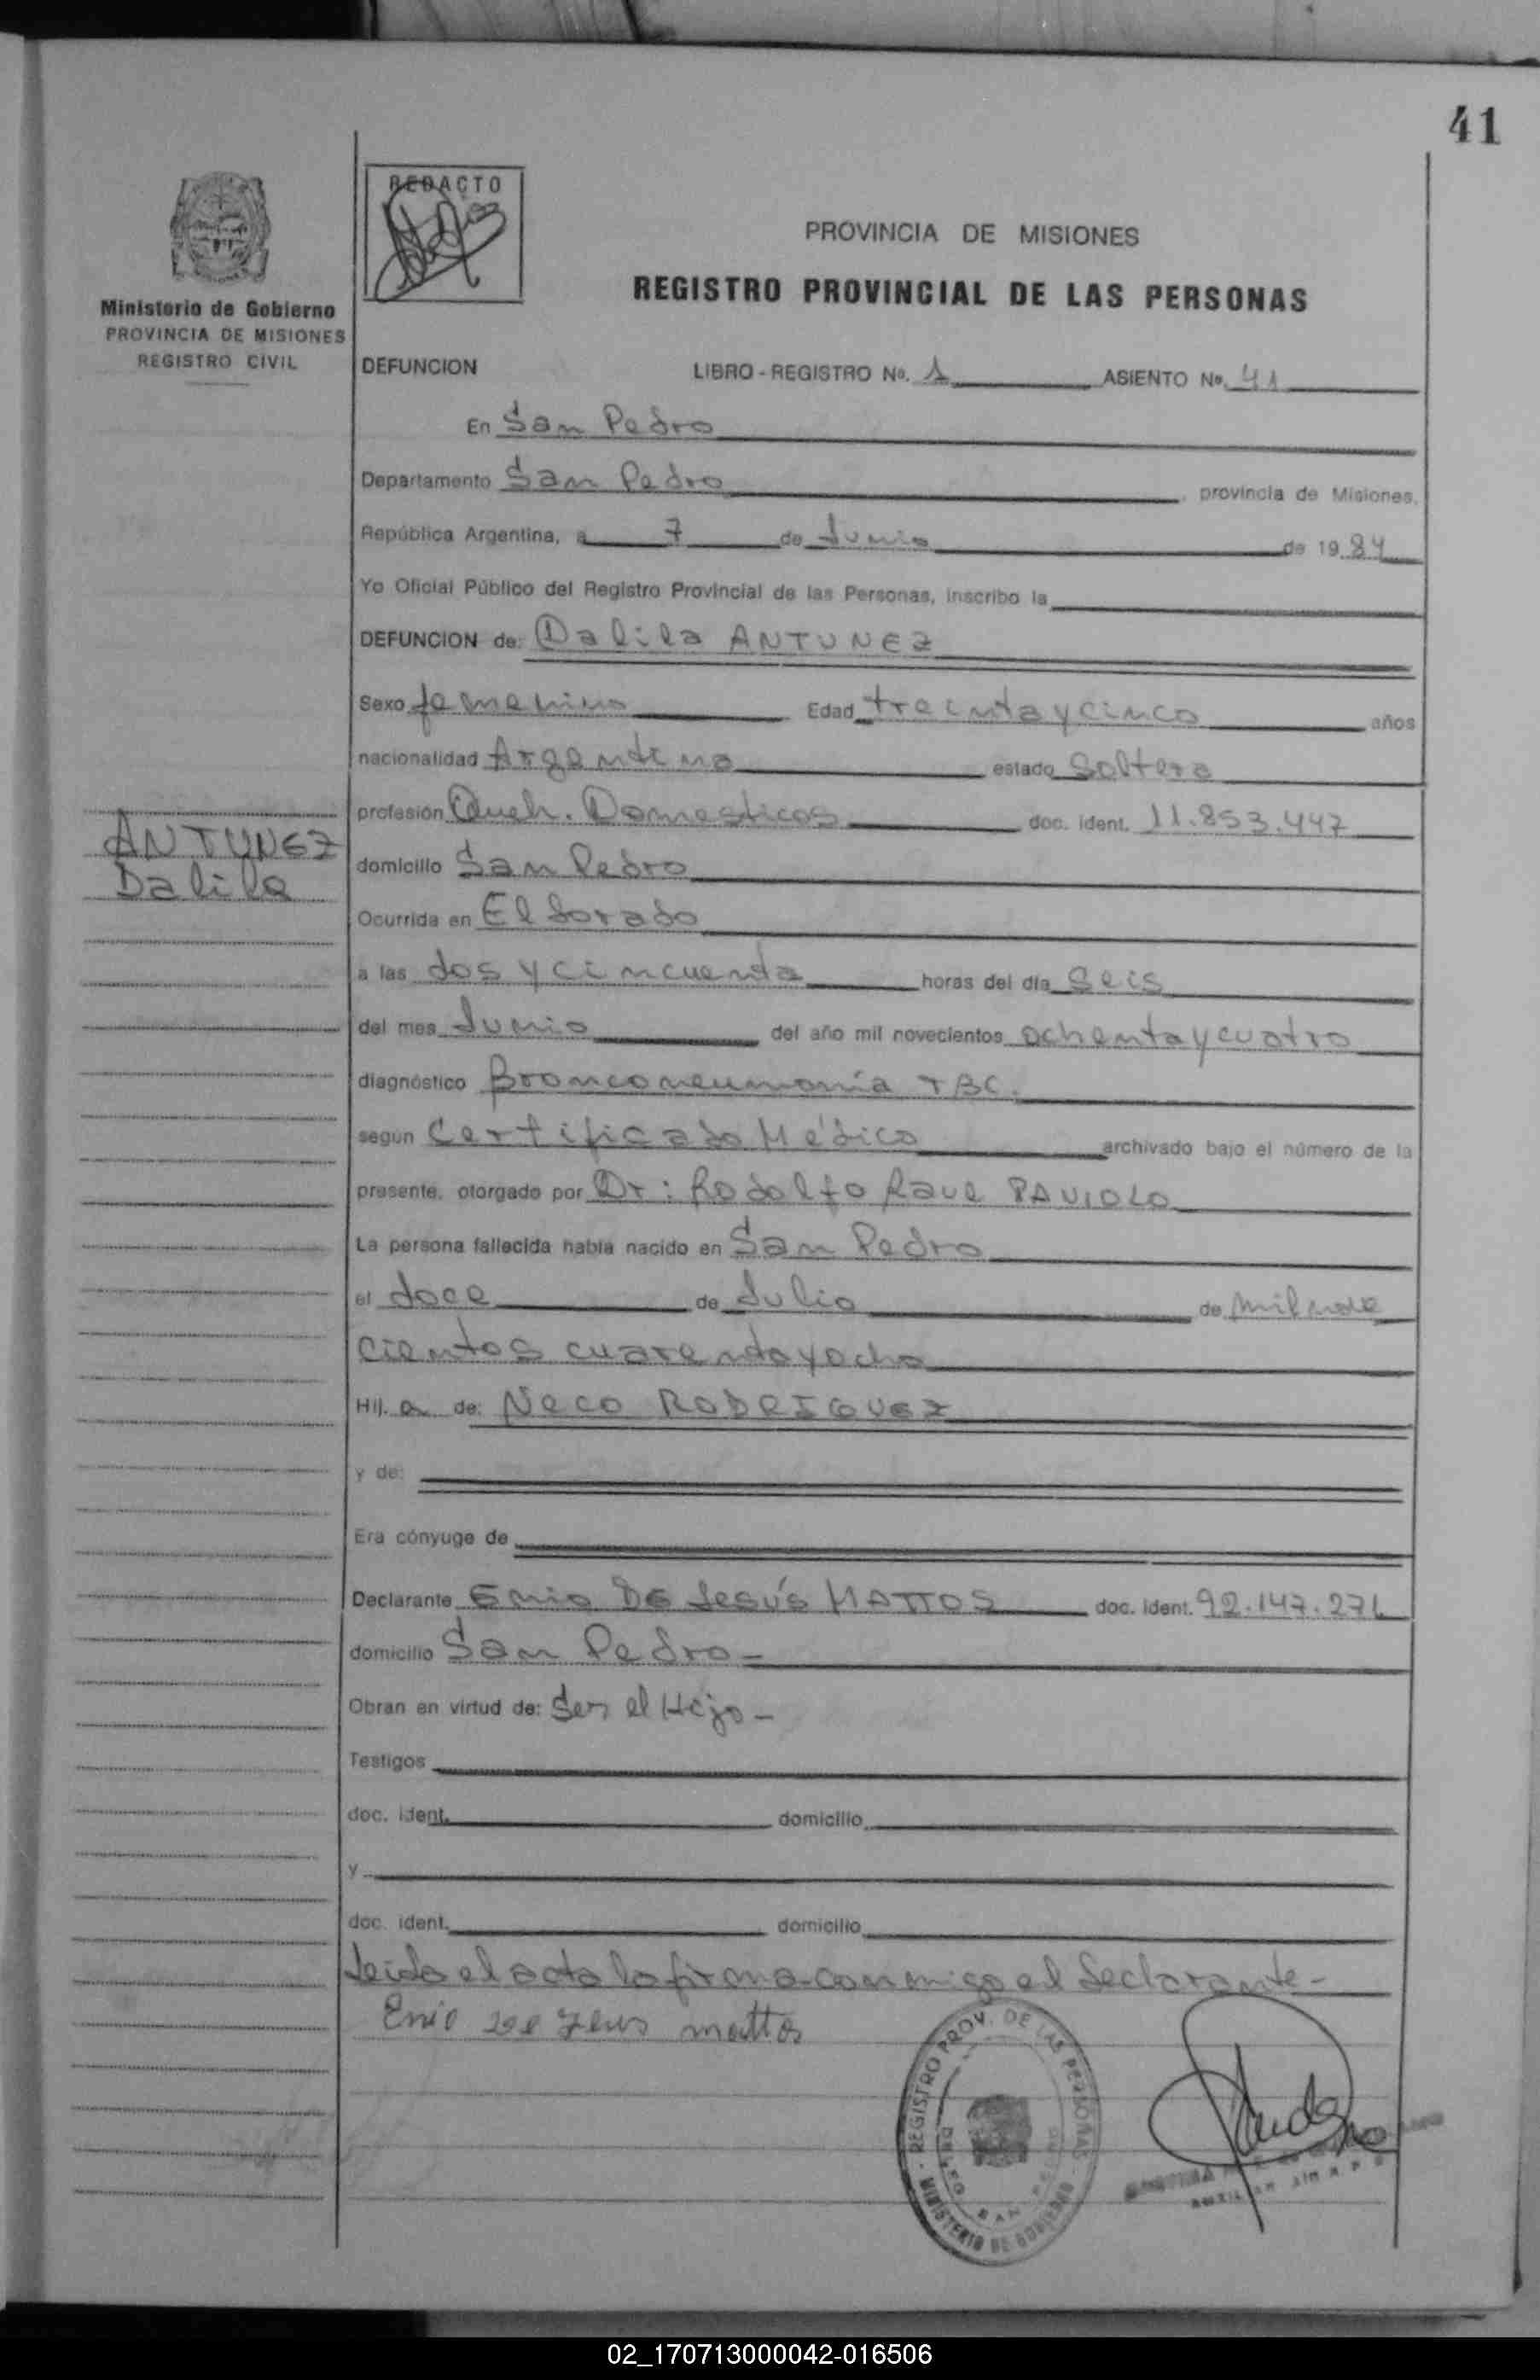 41
REDACTO
PROVINCIA DE MISIONES
REGISTRO PROVINCIAL DE LAS PERSONAS
Ministerio de Gobierno
PROVINCIA DE MISIONES
REGISTRO CIVIL
DEFUNCION LIBRO - REGISTRO No. 1 ASIENTO No. 41
En San Pedro
Departamento San Pedro, provincia de Misiones,
República Argentina, a 7 de Junio de 1984
Yo Oficial Público del Registro Provincial de las Personas, inscribo la
DEFUNCION de: Dalila ANTUNEZ
Sexo femenino Edad treinta y cinco años
nacionalidad Argentina estado Soltera
profesión Queh. Domesticos doc. ident. 11.853.447
ANTUNEZ
Dalila
domicilio San Pedro
Ocurrida en Eldorado
a las dos y cincuenta horas del día Seis
del mes Junio del año mil novecientos ochenta y cuatro
diagnóstico Bronconeumonía TBC.
según Certificado Médico archivado bajo el número de la
presente, otorgado por Dr: Rodolfo Raul PAVIOLO
La persona fallecida había nacido en San Pedro
el doce de Julio de mil nove
cientos cuarenta y ocho
Hij. a de: Neco RODRIGUEZ
y de:
Era cónyuge de
Declarante Enio DE Jesús MATTOS doc. ident. 92.147.271
domicilio San Pedro -
Obran en virtud de: Ser el Hijo -
Testigos
doc. ident. domicilio
y
doc. ident. domicilio
Leida el acta la firma conmigo el declarante -
Enio mattos
REGISTRO PROV. DE LAS PERSONAS
MINISTERIO DE GOBIERNO
02_170713000042-016506